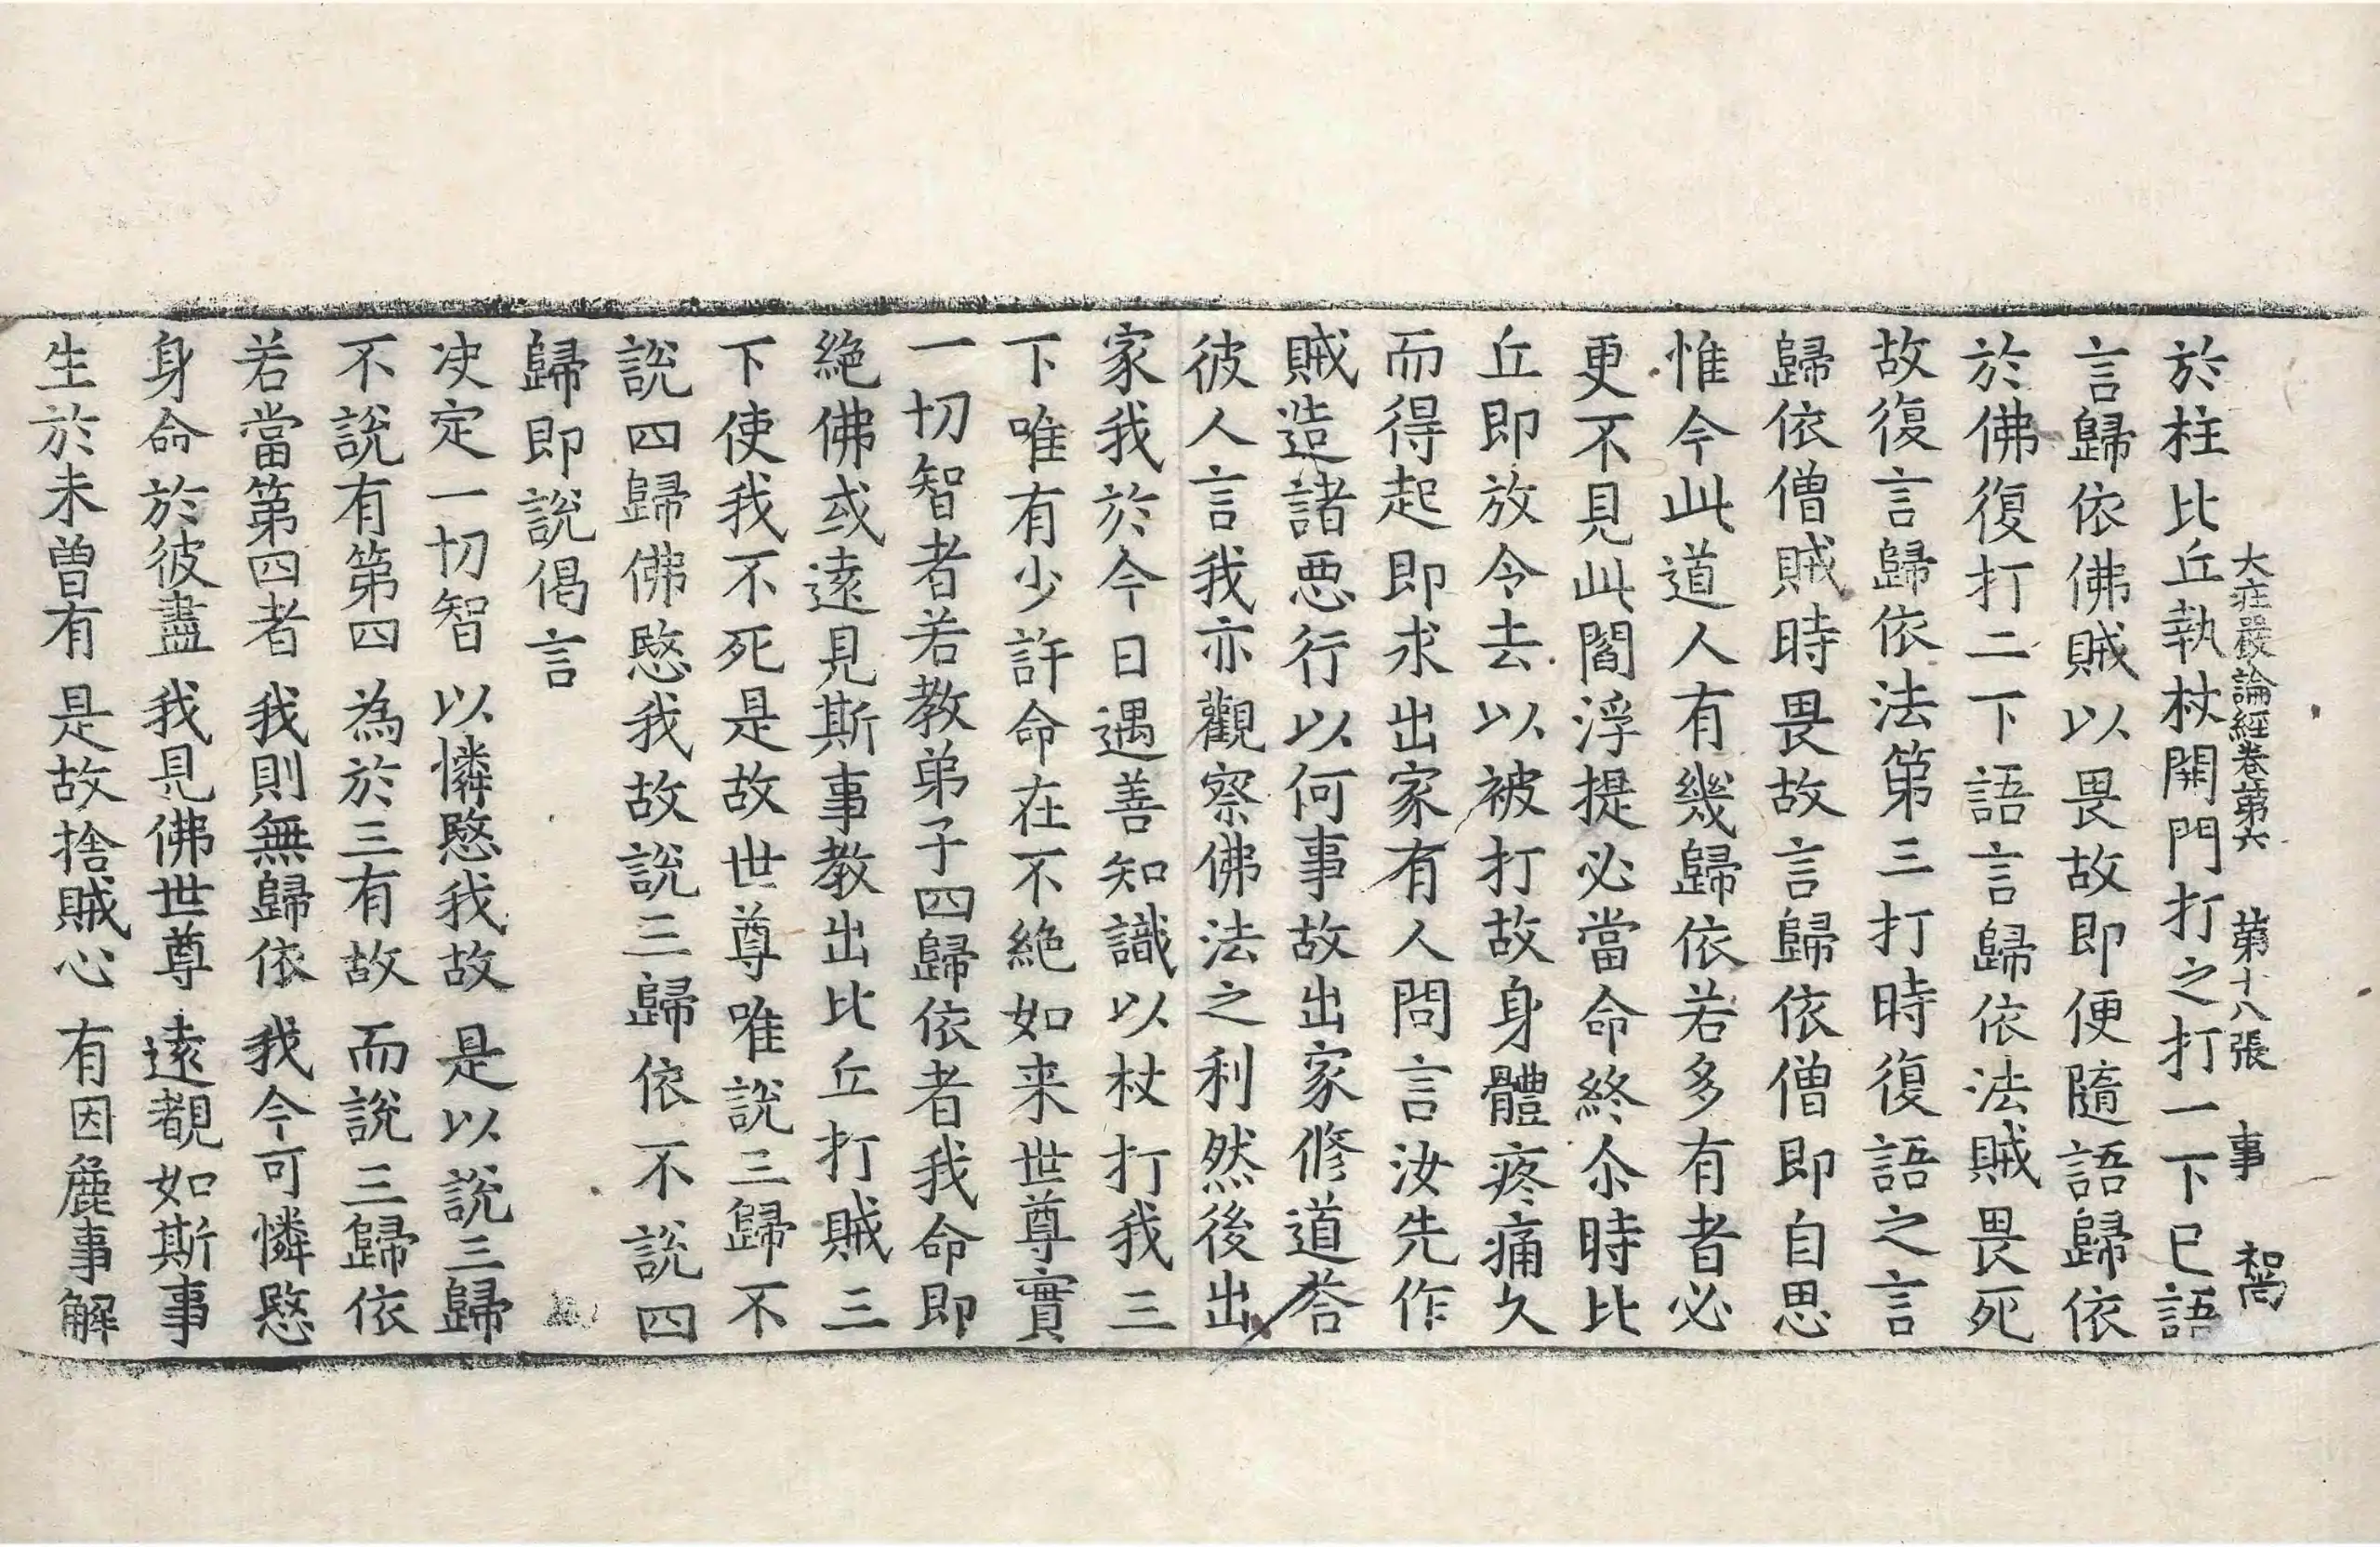 大莊嚴論經卷第六　第十八張　事
於柱比丘執杖開門打之打一下已語
言歸依佛賊以畏故即便隨語歸依
於佛復打二下語言歸依法賊畏死
故復言歸依法第三打時復語之言
歸依僧賊時畏故言歸依僧即自思
惟今此道人有幾歸依若多有者必
更不見此閻浮提必當命終尒時比
丘即放令去以被打故身體疼痛久
而得起即求出家有人問言汝先作
賊造諸惡行以何事故出家修道荅
彼人言我亦觀察佛法之利然後出
家我於今日遇善知識以杖打我三
下唯有少許命在不絕如来世尊實
一切智者若教弟子四歸依者我命即
絕佛或遠見斯事教出比丘打賊三
下使我不死是故世尊唯說三歸不
說四歸佛愍我故說三歸依不說四
歸即說偈言
决定一切智　以憐愍我故　是以說三歸
不說有第四　為於三有故　而說三歸依
若當第四者　我則無歸依　我今可憐愍
身命於彼盡　我見佛世尊　遠覩如斯事
生於未曾有　是故捨賊心　有因麁事解